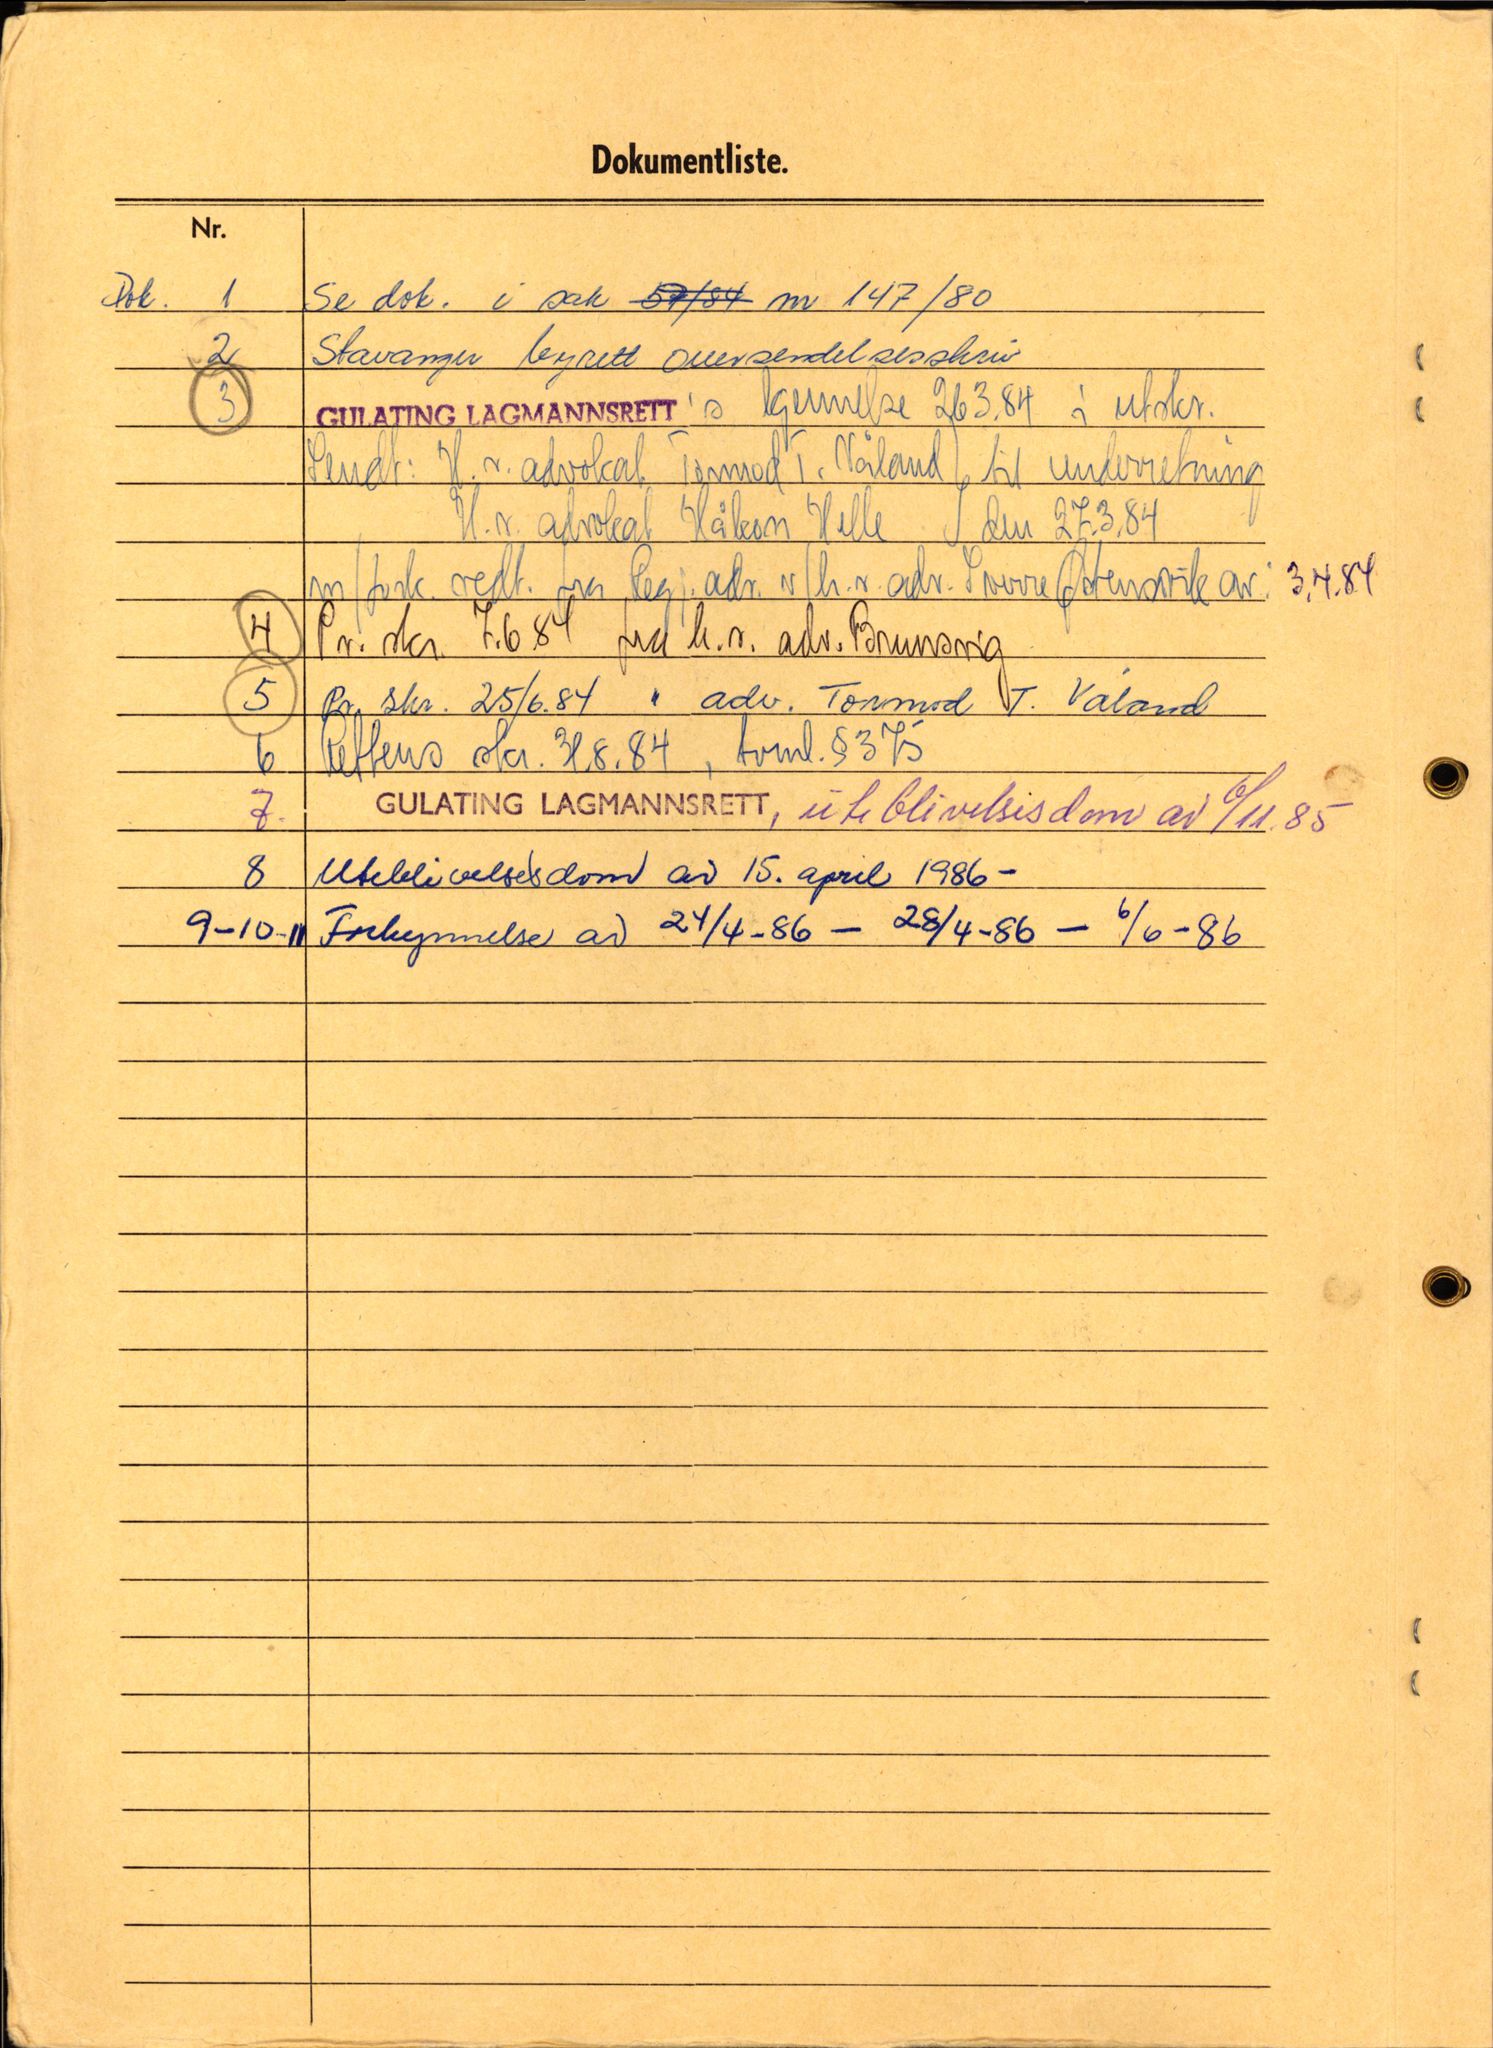 Dokumentliste.
Nr.
Dok. 1 Se dok. i sak 57/84 nr 147/80
2 Stavanger byrett oversendelsesskriv
3 GULATING LAGMANNSRETT's kjennelse 26.3.84 i utskr.
Sendt: H.r. advokat Tormod T. Våland } til underretning
H.r. advokat Håkon Helle } den 27.3.84
m/fork. vedt. fra Regj.adv. v/h.r. adv. Sverre Østensvik av: 3.4.84
4 Pr. skr. 7.6.84 fra h.r. adv. Brunsvig
5 Pr. skr. 25/6.84 " adv. Tormod T. Våland
6 Rettens skr. 31.8.84, tvml. § 375
7. GULATING LAGMANNSRETT, uteblivelsesdom av 6/11.85
8 Uteblivelsesdom av 15. april 1986-
9-10-11 Forkynnelse av 24/4-86 — 28/4-86 — 6/6-86